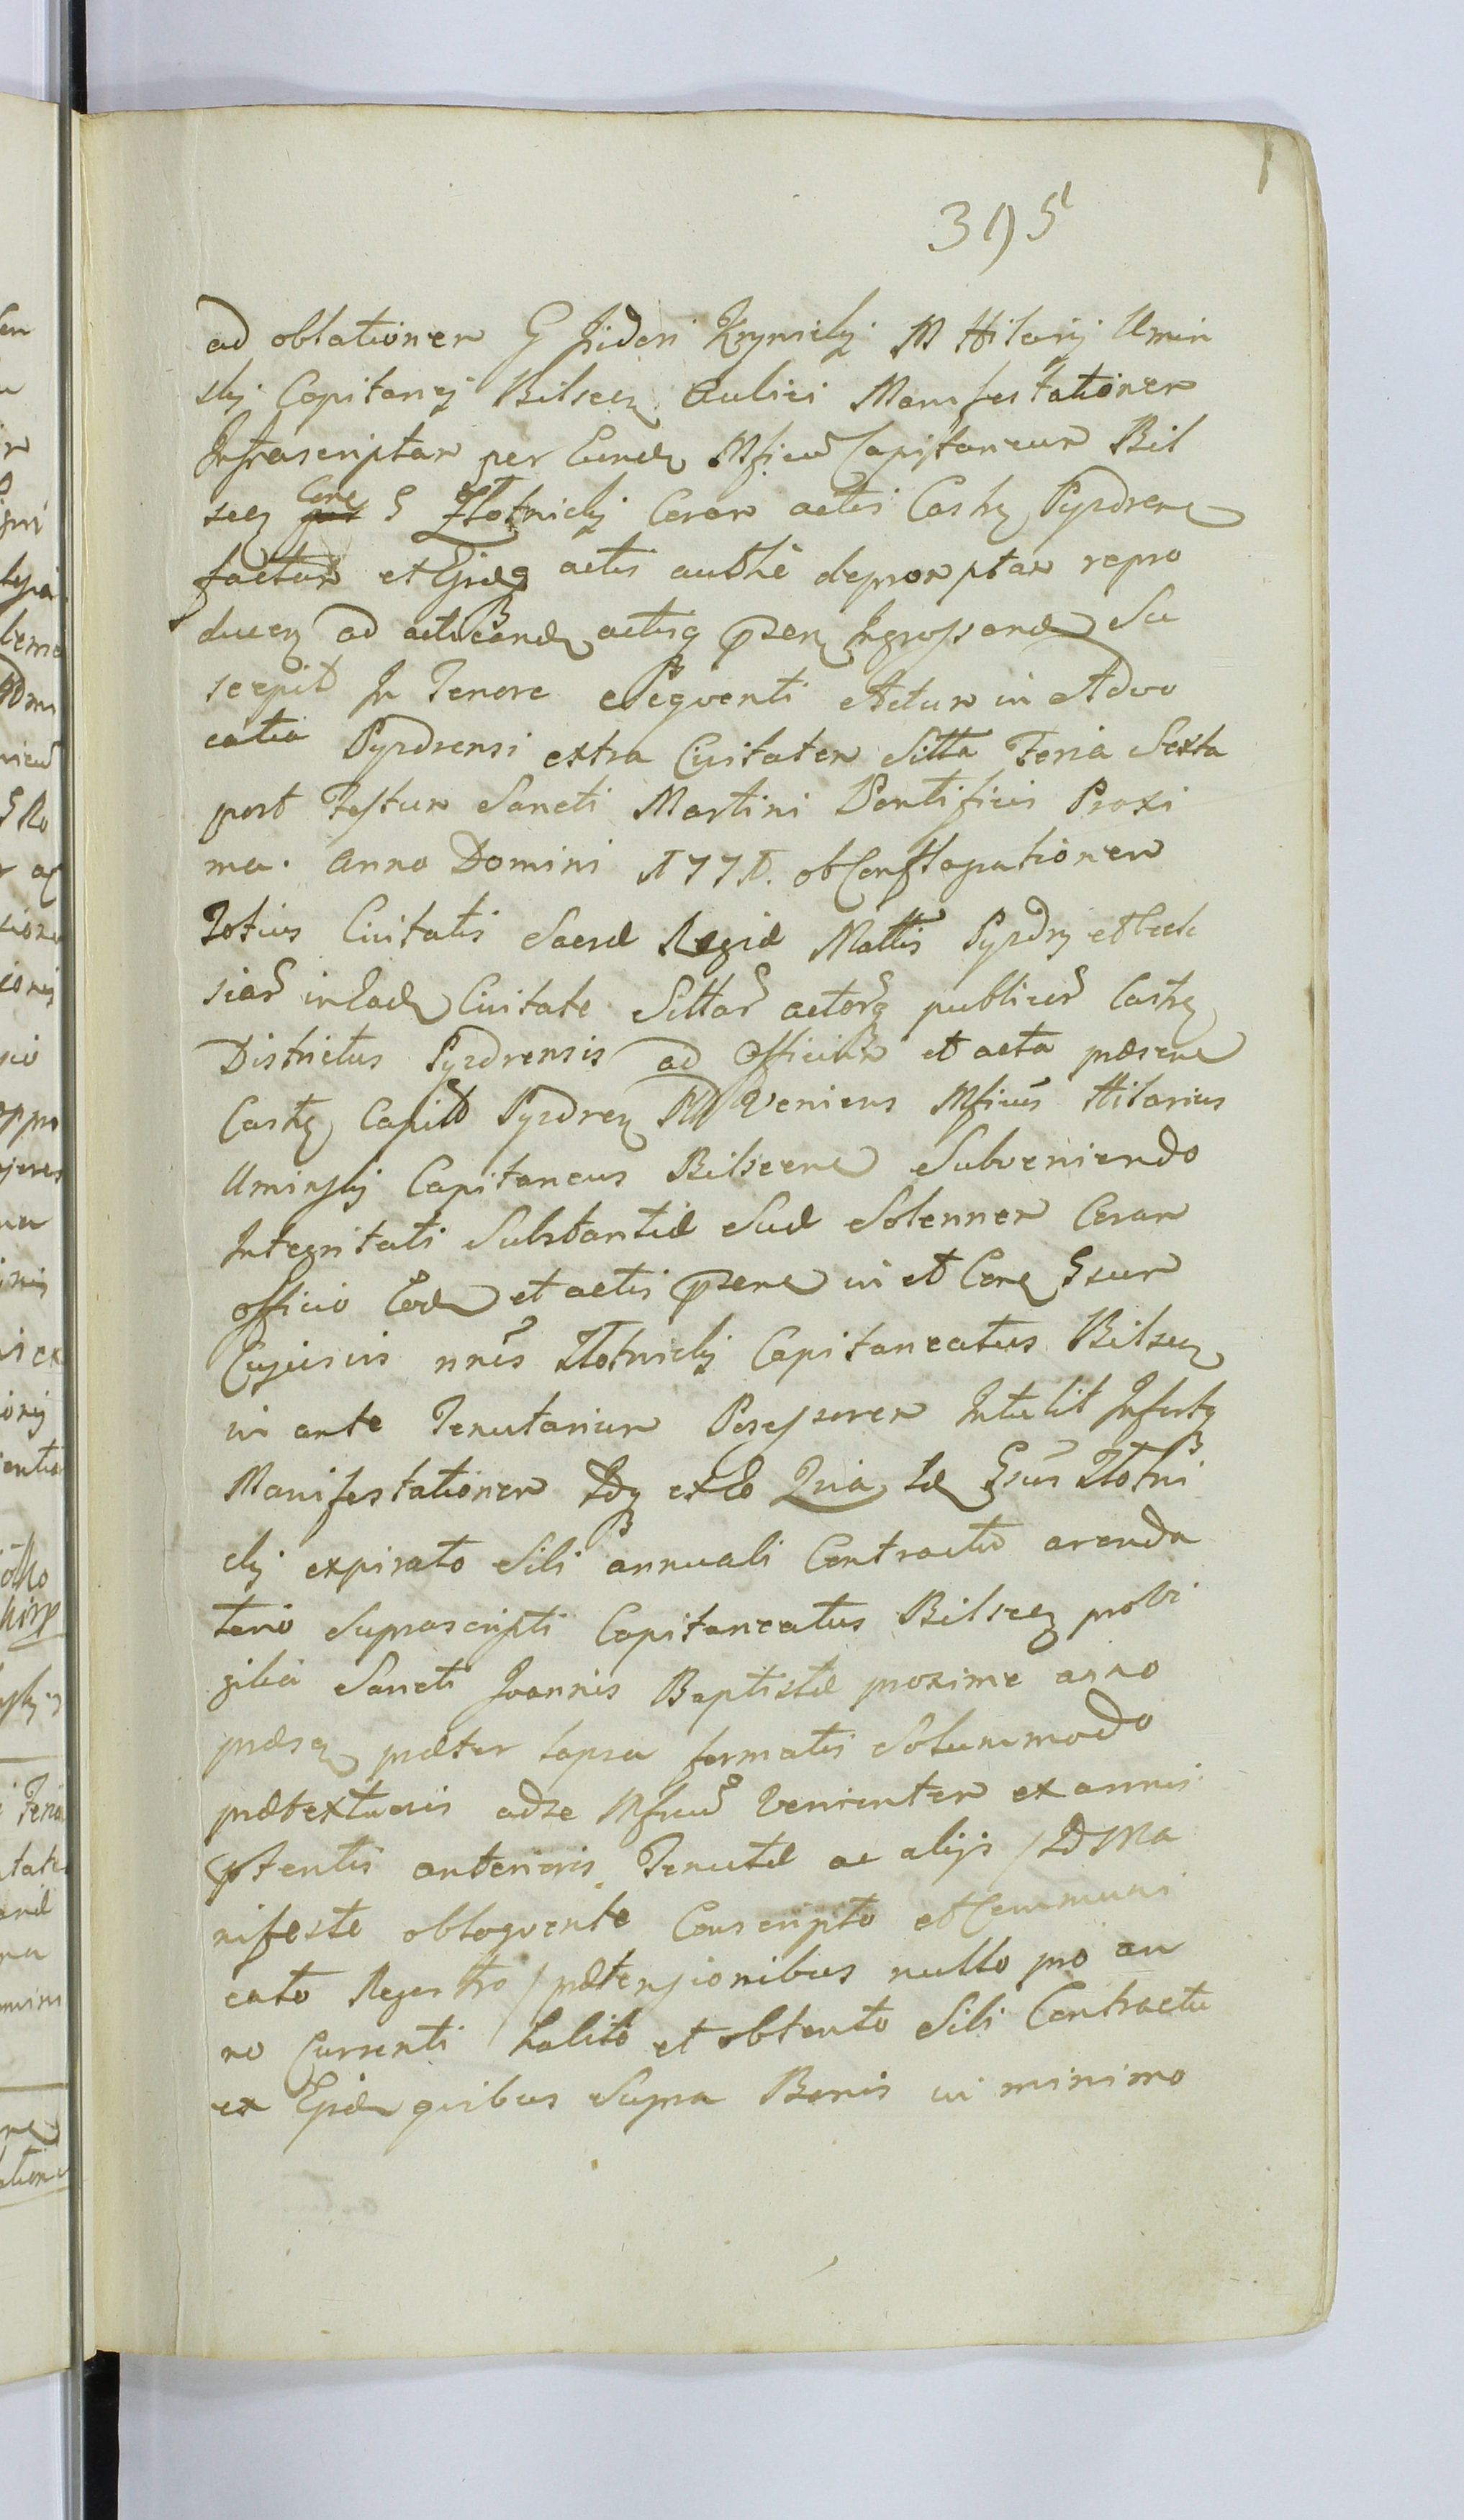 395
ad oblationem G Isidori Krynicky M Hilarij Umin
sky Capitanej Bilscen Aulici Manifestationem
Infrascriptam per Eundem Mficum Capitaneum Bil
scen Cone G Złotnicky Coram actis Castr Pyzdren
factam et actis authe depromptam repro
ducen ad acticand actisq psen Ingrossand Su
scepit In Tenore Seqventi Actum in Advo
catia Pyzdrensi extra Civitatem Sitta Feria Sexta
post Festum Sancti Martini Pontificis Proxi
ma. Anno Domini 1771. ob Conflagrationem
Totius Civitatis Sacræ Regiæ Mattis Pyzdry et Eccle
siar in Ead Civitate Sittar actorq publicor Castr
Districtus Pyzdrensis ad Officium et acta præsen
Castr Capit Pyzdren PM Veniens Mficus Hilarius
Uminsky Capitaneus Bilscen Subveniendo
Integritati Substantiæ Suæ Solennem Coram
officio Eod et actis psen in et Con Gsum
Cujusvis nnis Złotnicky Capitaneatus Bilscen
in ante Tenutarium Possessorem Intulit Infertq
Manifestationem Idq ex Eo Quia Id Gsus Złotni
cky expirato Sibi annuali Contractu arenda
torio Suprascripti Capitaneatus Bilscen pro Vi
gilia Sancti Joannis Baptistæ proxime anno
præsen præter lapsa formatis Solummodo
prætextuosis ad se Mficum Venientem ex annis
ptentis anterioris Tenutæ ac alijs / Ld Ma
nifeste obloqvente Conscripto et Communi
cato Regestro / prætensionibus nullo pro an
no Currenti habito et obtento Sibi Contractu
ex qvibus Supra Bonis in minimo